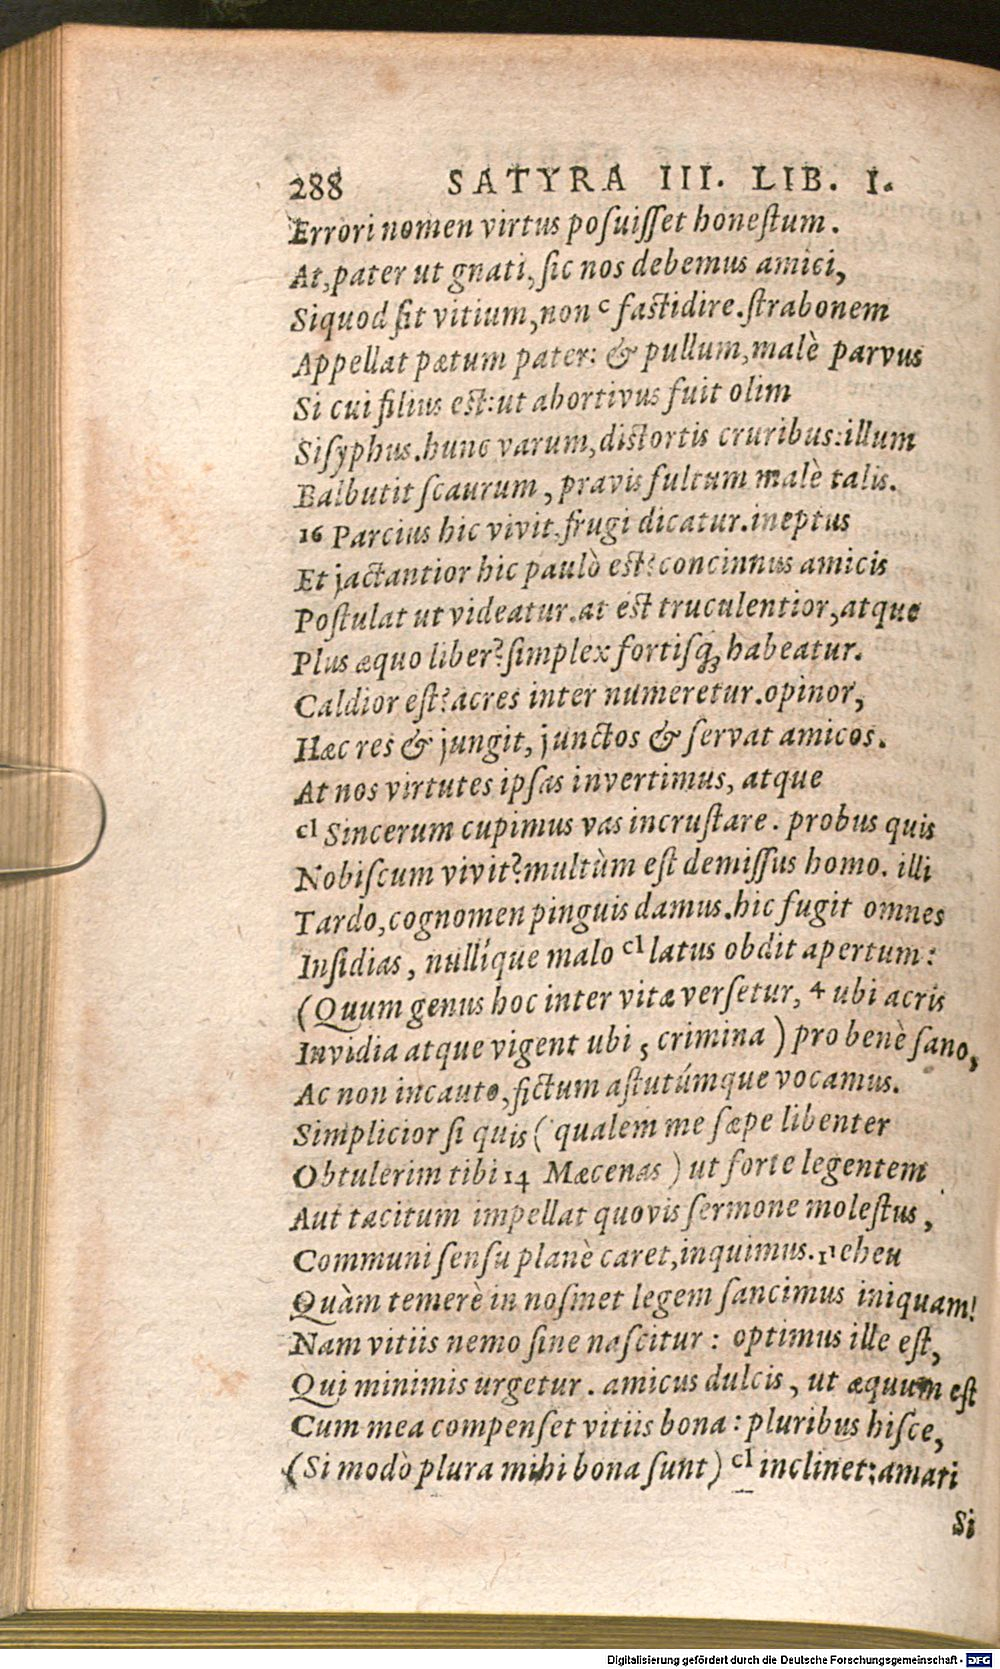 288 SATYRA III. LIB. I.
Errori nomen virtus posuisset honestum.
At, pater ut gnati, sic nos debemus amici,
Siquod sit vitium, non c fastidire. strabonem
Appellat pætum pater: & pullum, malè parvus
Si cui filius est: ut abortivus fuit olim
Sisyphus. hunc varum, distortis cruribus: illum
Balbutit scaurum, pravis fultum malè talis.
16 Parcius hic vivit. frugi dicatur. ineptus
Et jactantior hic paulò est? concinnus amicis
Postulat ut videatur. at est truculentior, atque
Plus æquo liber? simplex fortisq; habeatur.
Caldior est? acres inter numeretur. opinor,
Hæc res & jungit, junctos & servat amicos.
At nos virtutes ipsas invertimus, atque
cl Sincerum cupimus vas incrustare. probus quis
Nobiscum vivit? multùm est demissus homo. illi
Tardo, cognomen pinguis damus. hic fugit omnes
Insidias, nullíque malo cl latus obdit apertum:
(Quum genus hoc inter vitæ versetur, 4 ubi acris
Invidia atque vigent ubi 5 crimina) pro benè sano,
Ac non incauto, fictum astutúmque vocamus.
Simplicior si quis (qualem me sæpe libenter
Obtulerim tibi 14 Mæcenas) ut forte legentem
Aut tacitum impellat quovis sermone molestus,
Communi sensu planè caret, inquimus. eheu
Quàm temerè in nosmet legem sancimus iniquam!
Nam vitiis nemo sine nascitur: optimus ille est,
Qui minimis urgetur. amicus dulcis, ut æquum est
Cum mea compenset vitiis bona: pluribus hisce,
(Si modò plura mihi bona sunt) cl inclinet: amari
Si
Digitalisierung gefördert durch die Deutsche Forschungsgemeinschaft - DFG